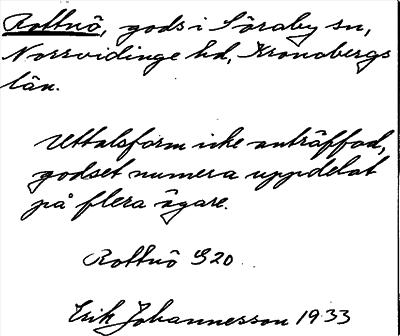 Rottnö, gods i Söraby sn,
Norrvidinge hd, Kronobergs
län.
Uttalsform icke anträffad,
godset numera uppdelat
på flera ägare.
Rottnö G20
Erik Johannesson 1933